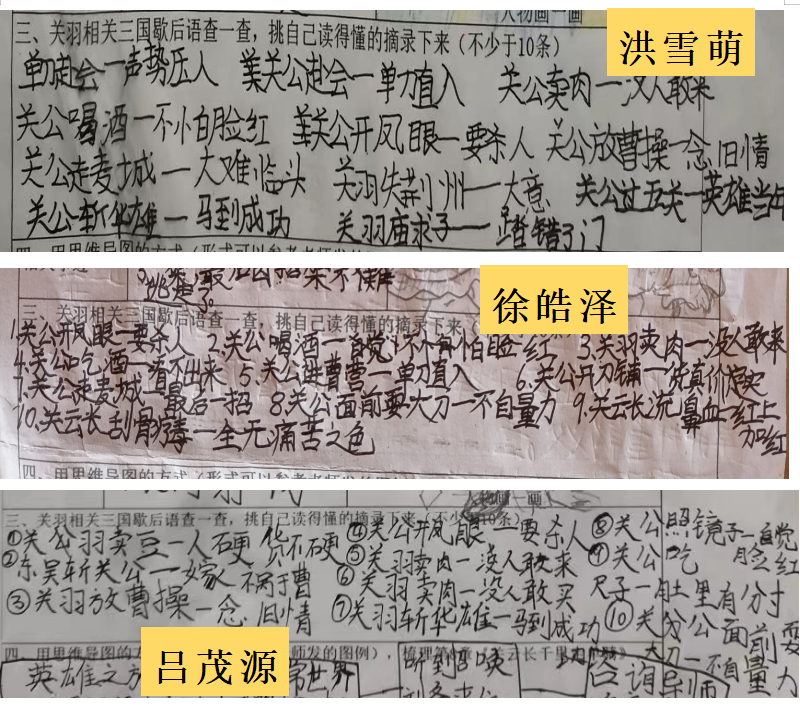 人物画一画
三、关羽相关三国歇后语查一查，挑自己读得懂的摘录下来（不少于10条）
洪雪萌
单刀赴会一声势压人 关公赴会一单刀直入 关公卖肉一没人敢来
关公喝酒一不怕脸红 关公开凤眼一要杀人 关公放曹操一念旧情
关公走麦城一大难临头 关羽失荆州一大意 关公过五关一英雄当年
关公斩华雄一马到成功 关羽庙求子一踏错了门
徐皓泽
三、关羽相关三国歇后语查一查，挑自己读得懂的摘录下来（
1.关公开凤眼一要杀人 2.关公喝酒一自觉不怕脸红 3.关羽卖肉一没人敢来
4.关公吃酒一看不出来 5.关公进曹营一单刀直入 6.关公开刀铺一货真价实
7.关公走麦城一最后一招 8.关公面前耍大刀一不自量力 9.关云长流鼻血一红上加红
10.关云长刮骨疗毒一全无痛苦之色
物画一画
三、关羽相关三国歇后语查一查，挑自己读得懂的摘录下来（不少于10条）
①关公羽卖豆一人硬货不硬
②东吴斩关公一嫁祸于曹
③关羽放曹操一念旧情
④关公开凤眼一要杀人
⑤关羽卖肉一没人敢来
⑥关羽卖肉一没人敢买
⑦关羽斩华雄一马到成功
⑧关公照镜子一自觉脸红
⑨关公吃尺子一肚里有分寸
⑩关公面前耍大刀一不自量力
吕茂源